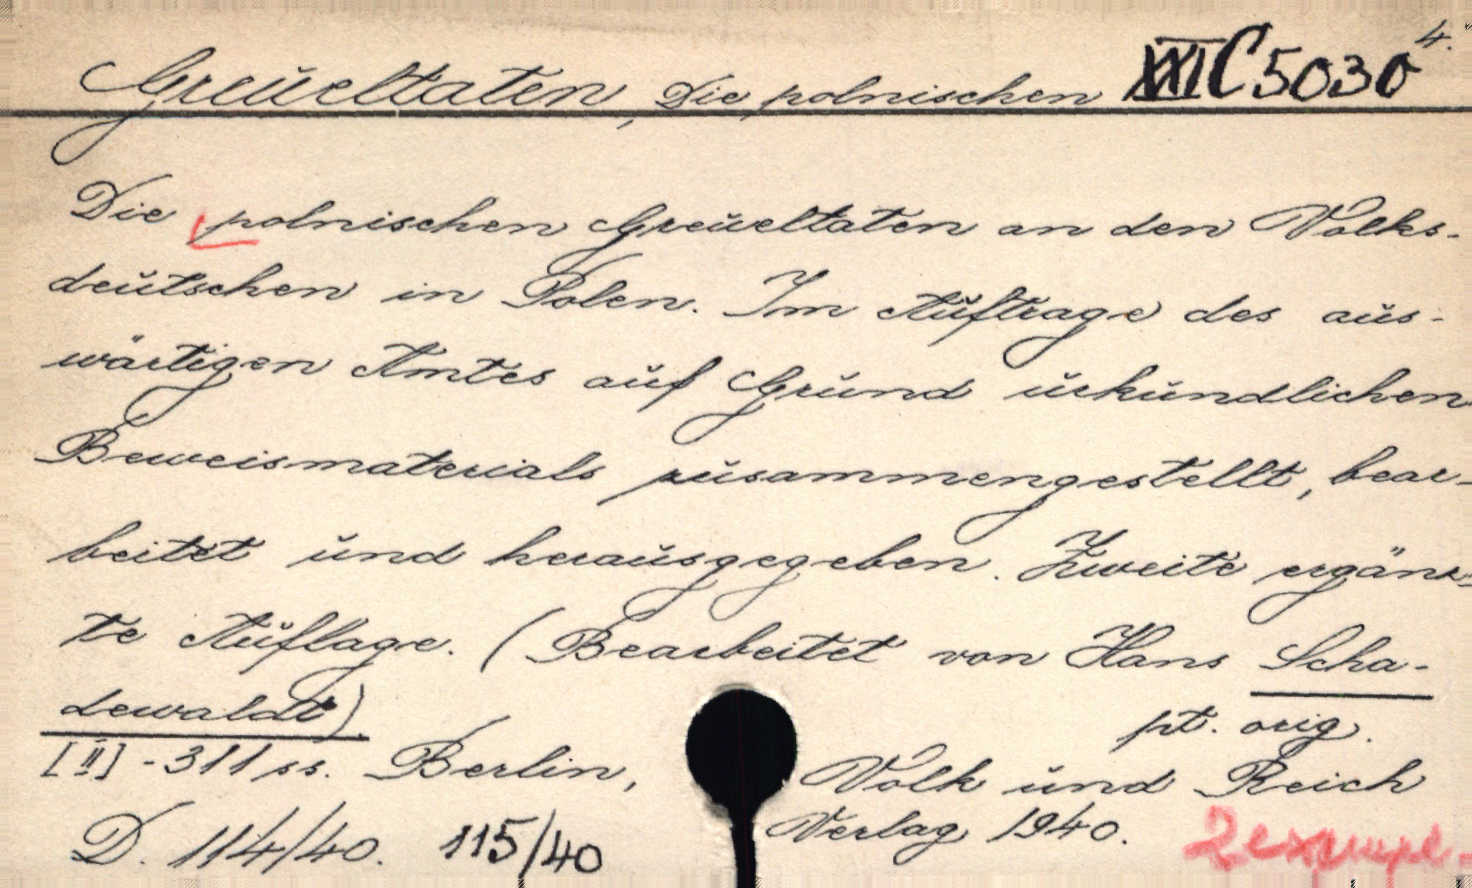 Greueltaten, Die polnischen XXI C 5030 4.
Die polnischen Greueltaten an den Volks-
deutschen in Polen. Im Auftrage des aus-
wärtigen Amtes auf Grund urkundlichen
Beweismaterials zusammengestellt, bear-
beitet und herausgegeben. Zweite ergänz-
te Auflage. (Bearbeitet von Hans Scha-
dewaldt)
pt. orig.
[II] - 311 ss. Berlin, Volk und Reich
Verlag 1940.
D. 114/40. 115/40
2 exempl.